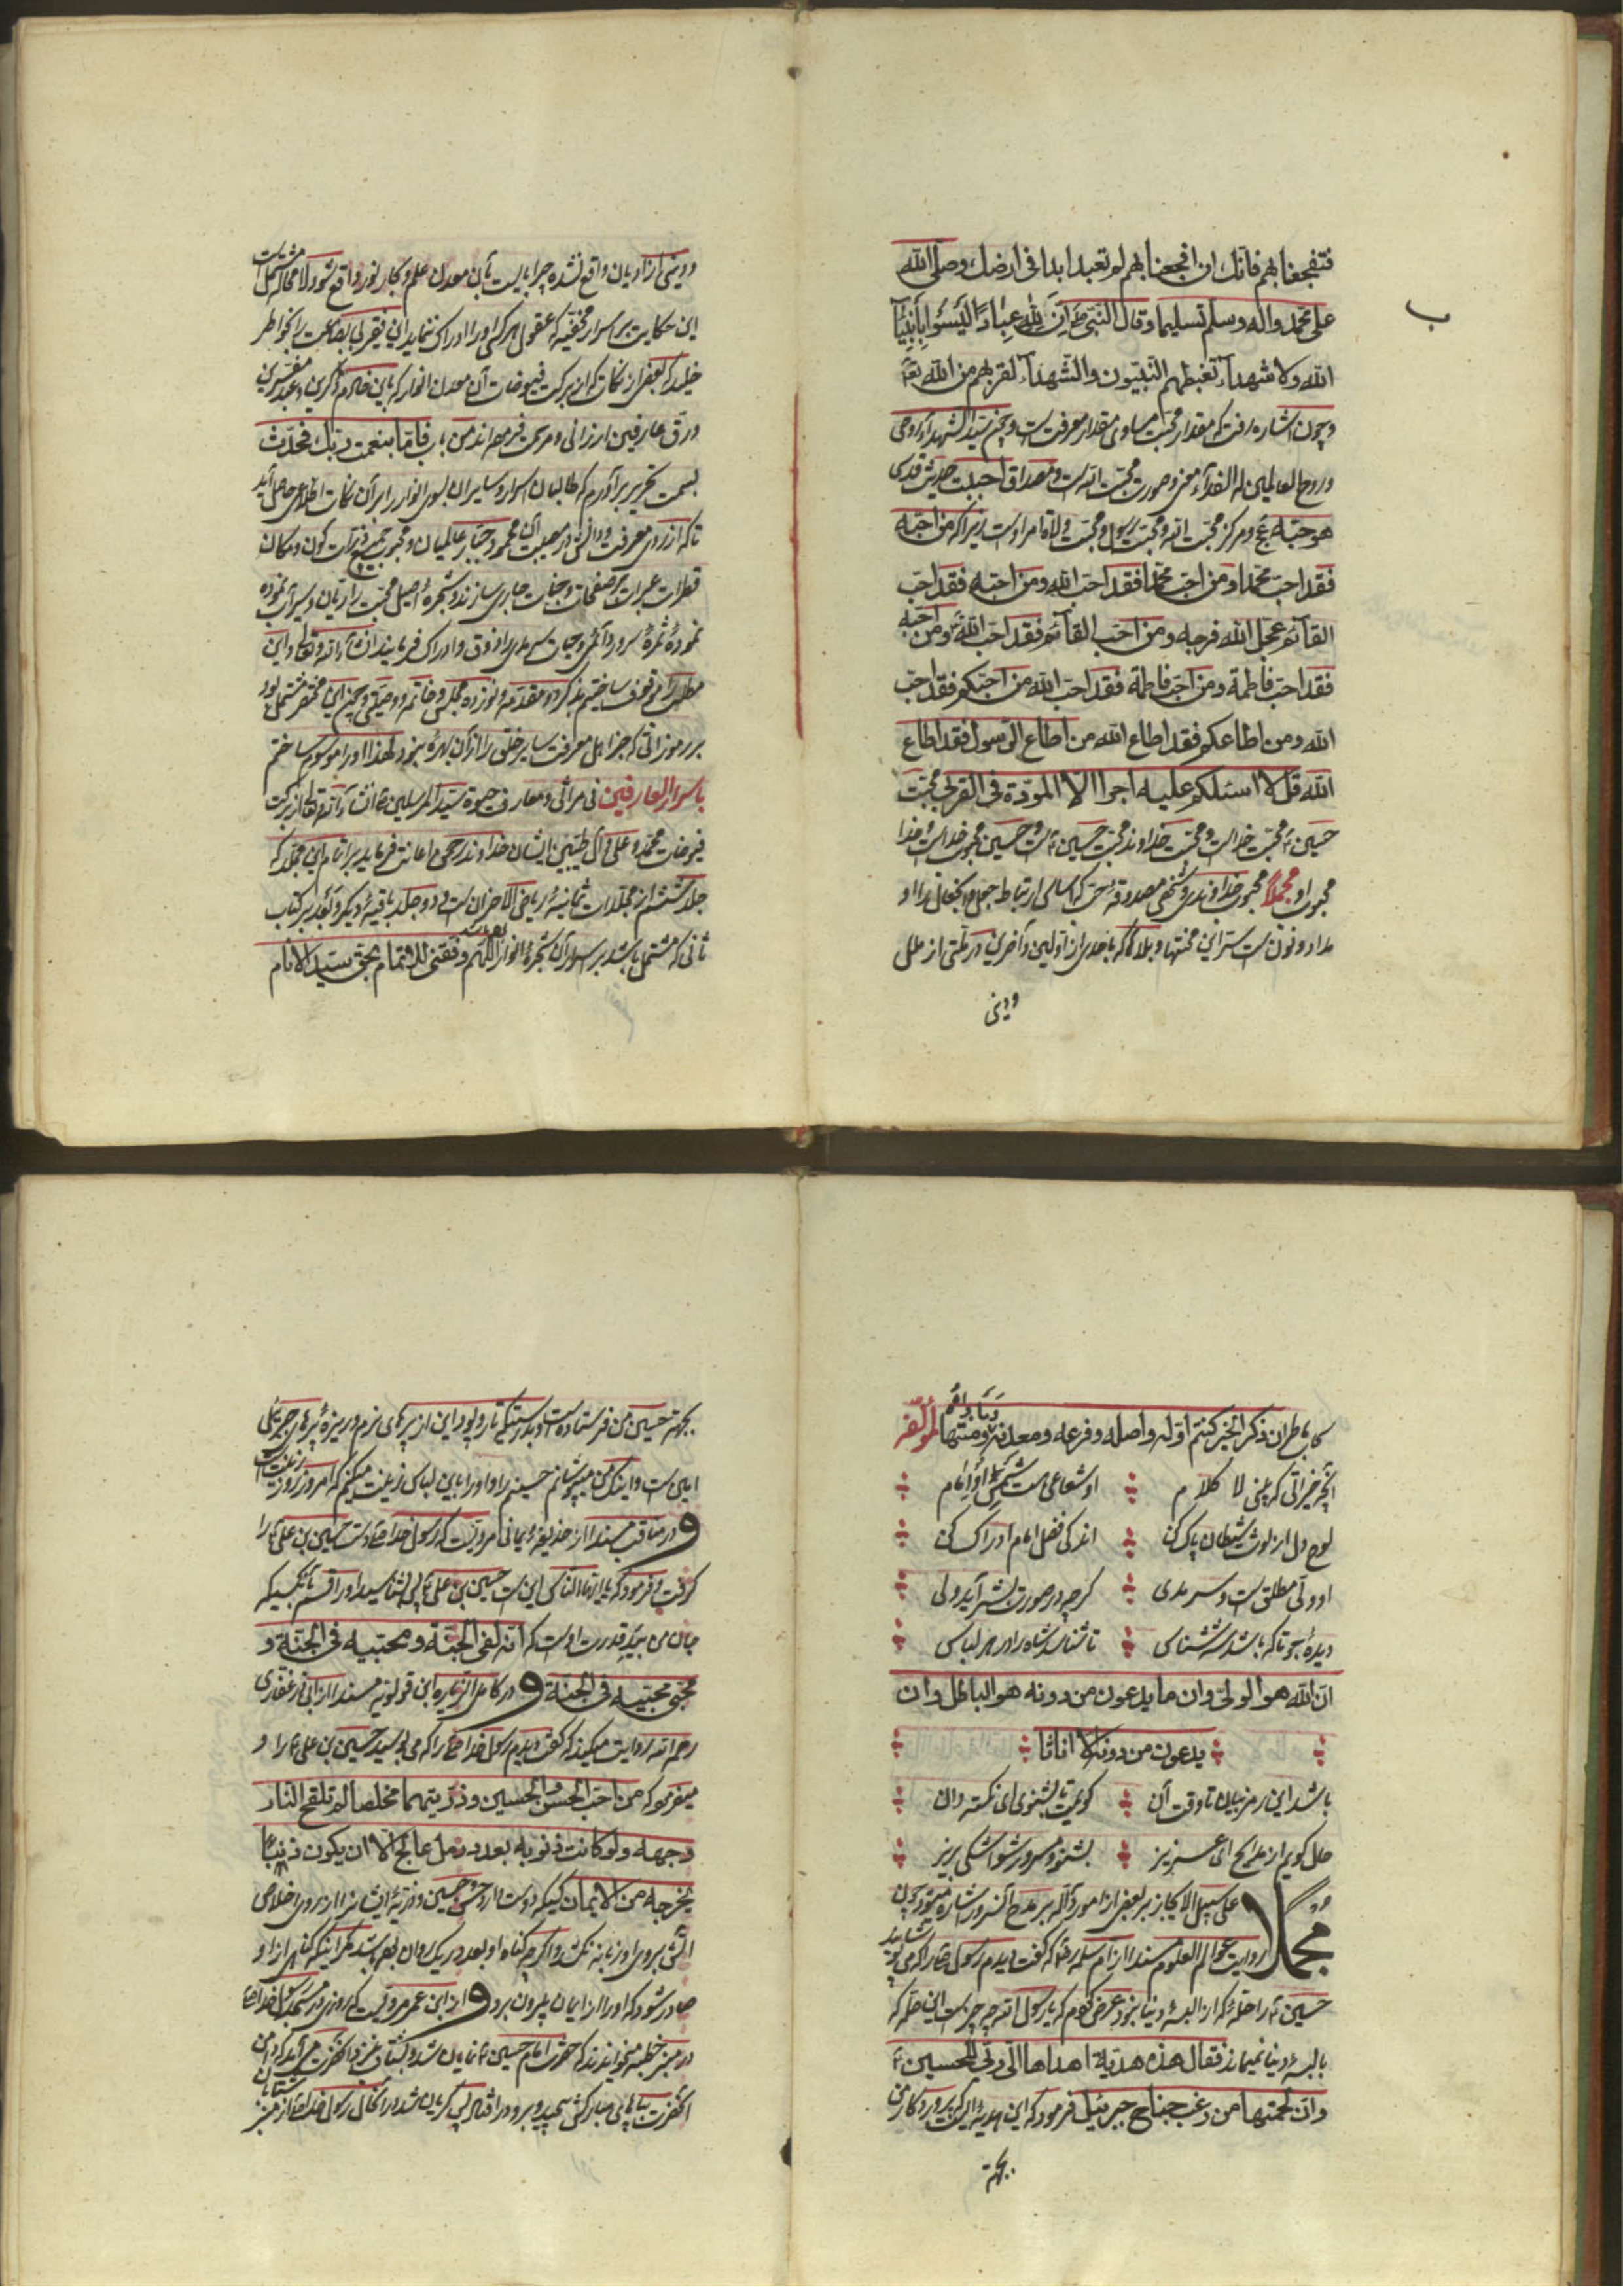 فتفجعنا بهم فانك ان افجعنا بهم لم تعبد ابدا فی ارضك وصلی الله
علی محمد واله وسلم تسلیما وقال النبی ان لله عبادا لیسوا بانبیاء
الله ولا شهداء تغبطهم النبیون والشهداء لقربهم من الله
وچون اشاره رفت که مقدار محبت مساوی مقدار معرفت است سید الشهداء روحی
وروح العالمین له الفداء صورت محبت الله است ومصداق احببت حدیث قدسی
ب
هو حبه ومرکز محبت الله ومحبت رسول ومحبت ولاة امر اوست زیرا که من احبه
فقد احب محمدا ومن احب محمدا فقد احب الله ومن احبه فقد احب
القائم عجل الله فرجه ومن احب القائم فقد احب الله ومن احبه
فقد احب فاطمة ومن احب فاطمة فقد احب الله من احبکم فقد احب
الله ومن اطاعکم فقد اطاع الله من اطاع الرسول فقد اطاع
الله قل لا اسئلکم علیه اجرا الا المودة فی القربی محبت
حسین محبت خداست ومحبت خداوند محبت حسین است وحسین محبوب خداست وخدا
محبوب او مجملا محبوب خداوندی
مداد ونون است ستر این محنتها وبلاها که باحدی از اولین وآخرین در ملتی از ملل
ودینی
ودینی از ادیان واقع نشده چرا بایست بآن معدن علم وکان نور واقع شود لا محاله مشکلست
این حکایت بر اسرار مخفیه که عقول هر کس او را ادراك ننماید این فقیر بی بضاعت را بخواطر
خلید که بعضی از نکات که از برکت فیوضات آن معدن انوار که باین خادم ذاکرین وعبد مفسرین
ورق عارفین ارزانی ومرحمت فرموده اند من باب فاما بنعمت ربك فحدث
بسمت تحریر برآورم که طالبان اسرار وسایران بسوی انوار را بر آن نکات اطلاعی حاصل آید
تا که از روی معرفت ودانش در مصیبت آن محبوب عالمیان ذرات کون ومکان
قطرات عبرات بر صفحات وجنات جاری سازند وشجره اصیل محبت را ریان وسیراب نموده
نموده ثمره سرور دائمی وحیات سرمدی را ذوق وادراك فرمایند انشاء الله تعالی واین
مقدمه ونوزده مجلس وخاتمه ووصیتی وچون این مختصر مشتمل بود
بر رموزاتی که جز اهل معرفت سایر خلق را از آن بهره نبود لهذا او را موسوم ساختم
باسرار العارفین فی مراثی ومعارف سید المرسلین انشاء الله تعالی از برکت
فیوضات محمد وعلی وآل طیبین ایشان خداوند رحمن اعانت فرماید بر اتمام این مجلد که
جلد ششم از مجلدات ثمانیه ریاض الاحزان است ودو جلد باقیه دیگر
ثانی که مشتمل باشد بر اسرار آن شجره انوار اللهم وفقنی للاتمام بحق سید الانام
کان باطن ان ذکر الخیر کنتم اوله واصله وفرعه ومعدنه ومنتهاه لمؤلفه
او شعاعی است
لوح دل از لوث شیطان پاك کن اندکی فضل امام ادراك کن
او ولی مطلق است وسرمدی گرچه در صورت بشر آید ولی
دیده بجو تا که باشد شه شناس تا شناسد شاه را در هر لباس
ان الله هو الولی وان ما یدعون من دونه هو الباطل وان
یدعون من دونه الا اناثا
باشد این رمز نهان تا وقت آن گویمت تا بشنوی ای نکته دان
حال گویم از مدایح ای عزیز بشنو ومسرور شو اشکی بریز
مجملا علی سبیل الایجاز بر بعضی از امور داله بر مدح آنسرور اشاره میشود چون
روایت عوالم العلوم مسندا از ام سلمه که گفت دیدم رسول خدا را که می پوشانید
حسین را حله که از البسه دنیا نبود عرض کردم که یا رسول الله چه چیز است این حله که
بالبسه دنیا نمیماند فقال هذه هدیة اهداها الی ربی للحسین
وان لحمتها من زغب جناح جبرئیل فرمود که این هدیه ایست که پروردگار من
بجهة
بجهة حسین من فرستاده است وبدرستیکه تار وپود این از پرهای نرم وریزه پرهای جبرئیل
امین است واینك من میپوشانم حسینم را واو را باین لباس زینت میکنم که امروز روز زینت است
ودر مناقب مسندا از حذیفه یمانی مرویست که رسول خدا دست حسین بن علی را
گرفت وفرمود که یا ایها الناس این است حسین بن علی بشناسید او را قسم بآنکسیکه
جان من بید قدرت اوست که انه لفی الجنة ومحبیه فی الجنة و
محبی محبیه فی الجنة ودر کامل الزیاره ابن قولویه مسندا از ابی ذر غفاری
رحمه الله روایت میکند که گفت دیدم رسول خدا را که می بوسید حسین بن علی را و
میفرمود که من احب الحسن والحسین وذریتهما مخلصا لم تلفح النار
وجهه ولو کانت ذنوبه بعدد رمل عالج الا ان یکون ذنبا
یخرجه من الایمان کسیکه دوست دارد حسن وحسین وذریه ایشانرا از روی اخلاص
آتش بروی او زبانه نکشد واگرچه گناه او بعدد ریك روان بوده باشد مگر اینکه گناهی از او
صادر شود که او را از ایمان بیرون برد واز ابن عمر مرویست که روزی در مسجد رسول خدا
در منبر خطبه میخواندند که حضرت امام حسین نمایان شد
آنحضرت بپای مبارکش پیچید وبرو در افتاد پس گریان شد در آنحال رسول خدا از منبر